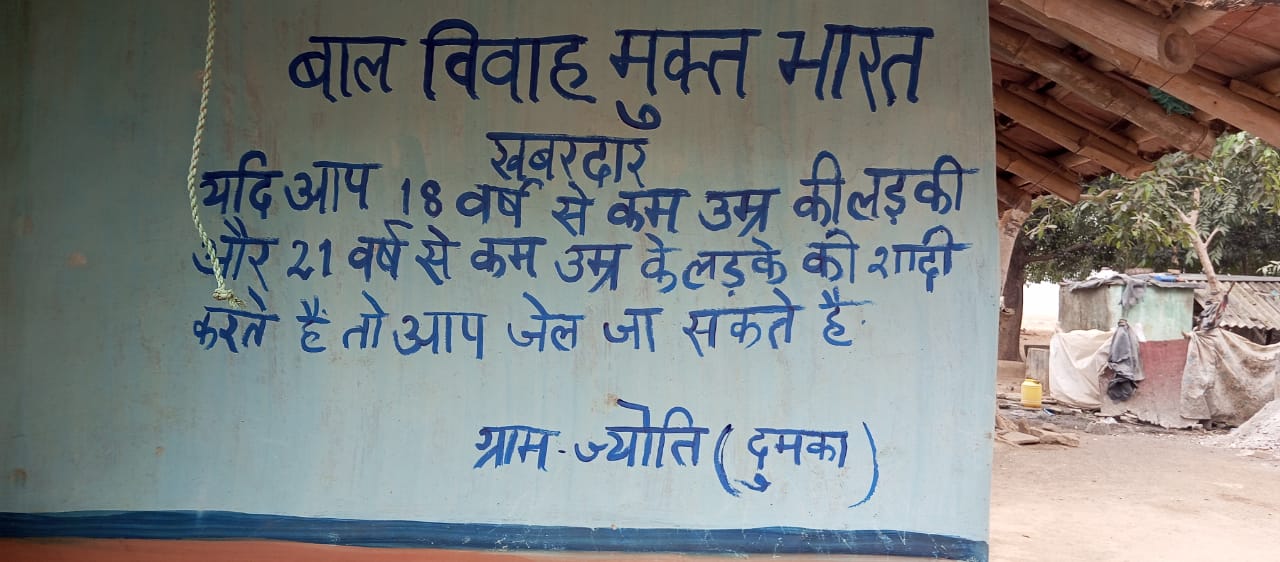 बाल विवाह मुक्त भारत
खबरदार
यदि आप 18 वर्ष से कम उम्र की लड़की
और 21 वर्ष से कम उम्र के लड़के की शादी
करते हैं तो आप जेल जा सकते है.
ग्राम-ज्योति (दुमका)